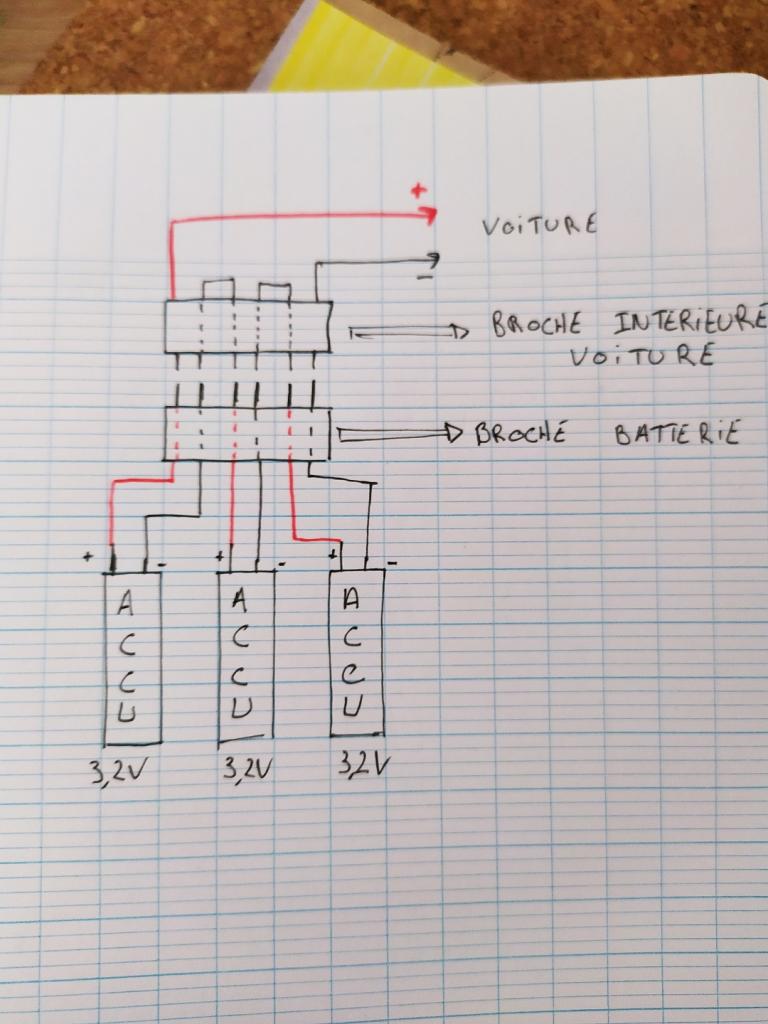 +
VOITURE
-
BROCHE INTERIEURE
VOITURE
BROCHE BATTERIE
+ - + - + -
A A A
C C C
C C C
U U U
3,2V 3,2V 3,2V